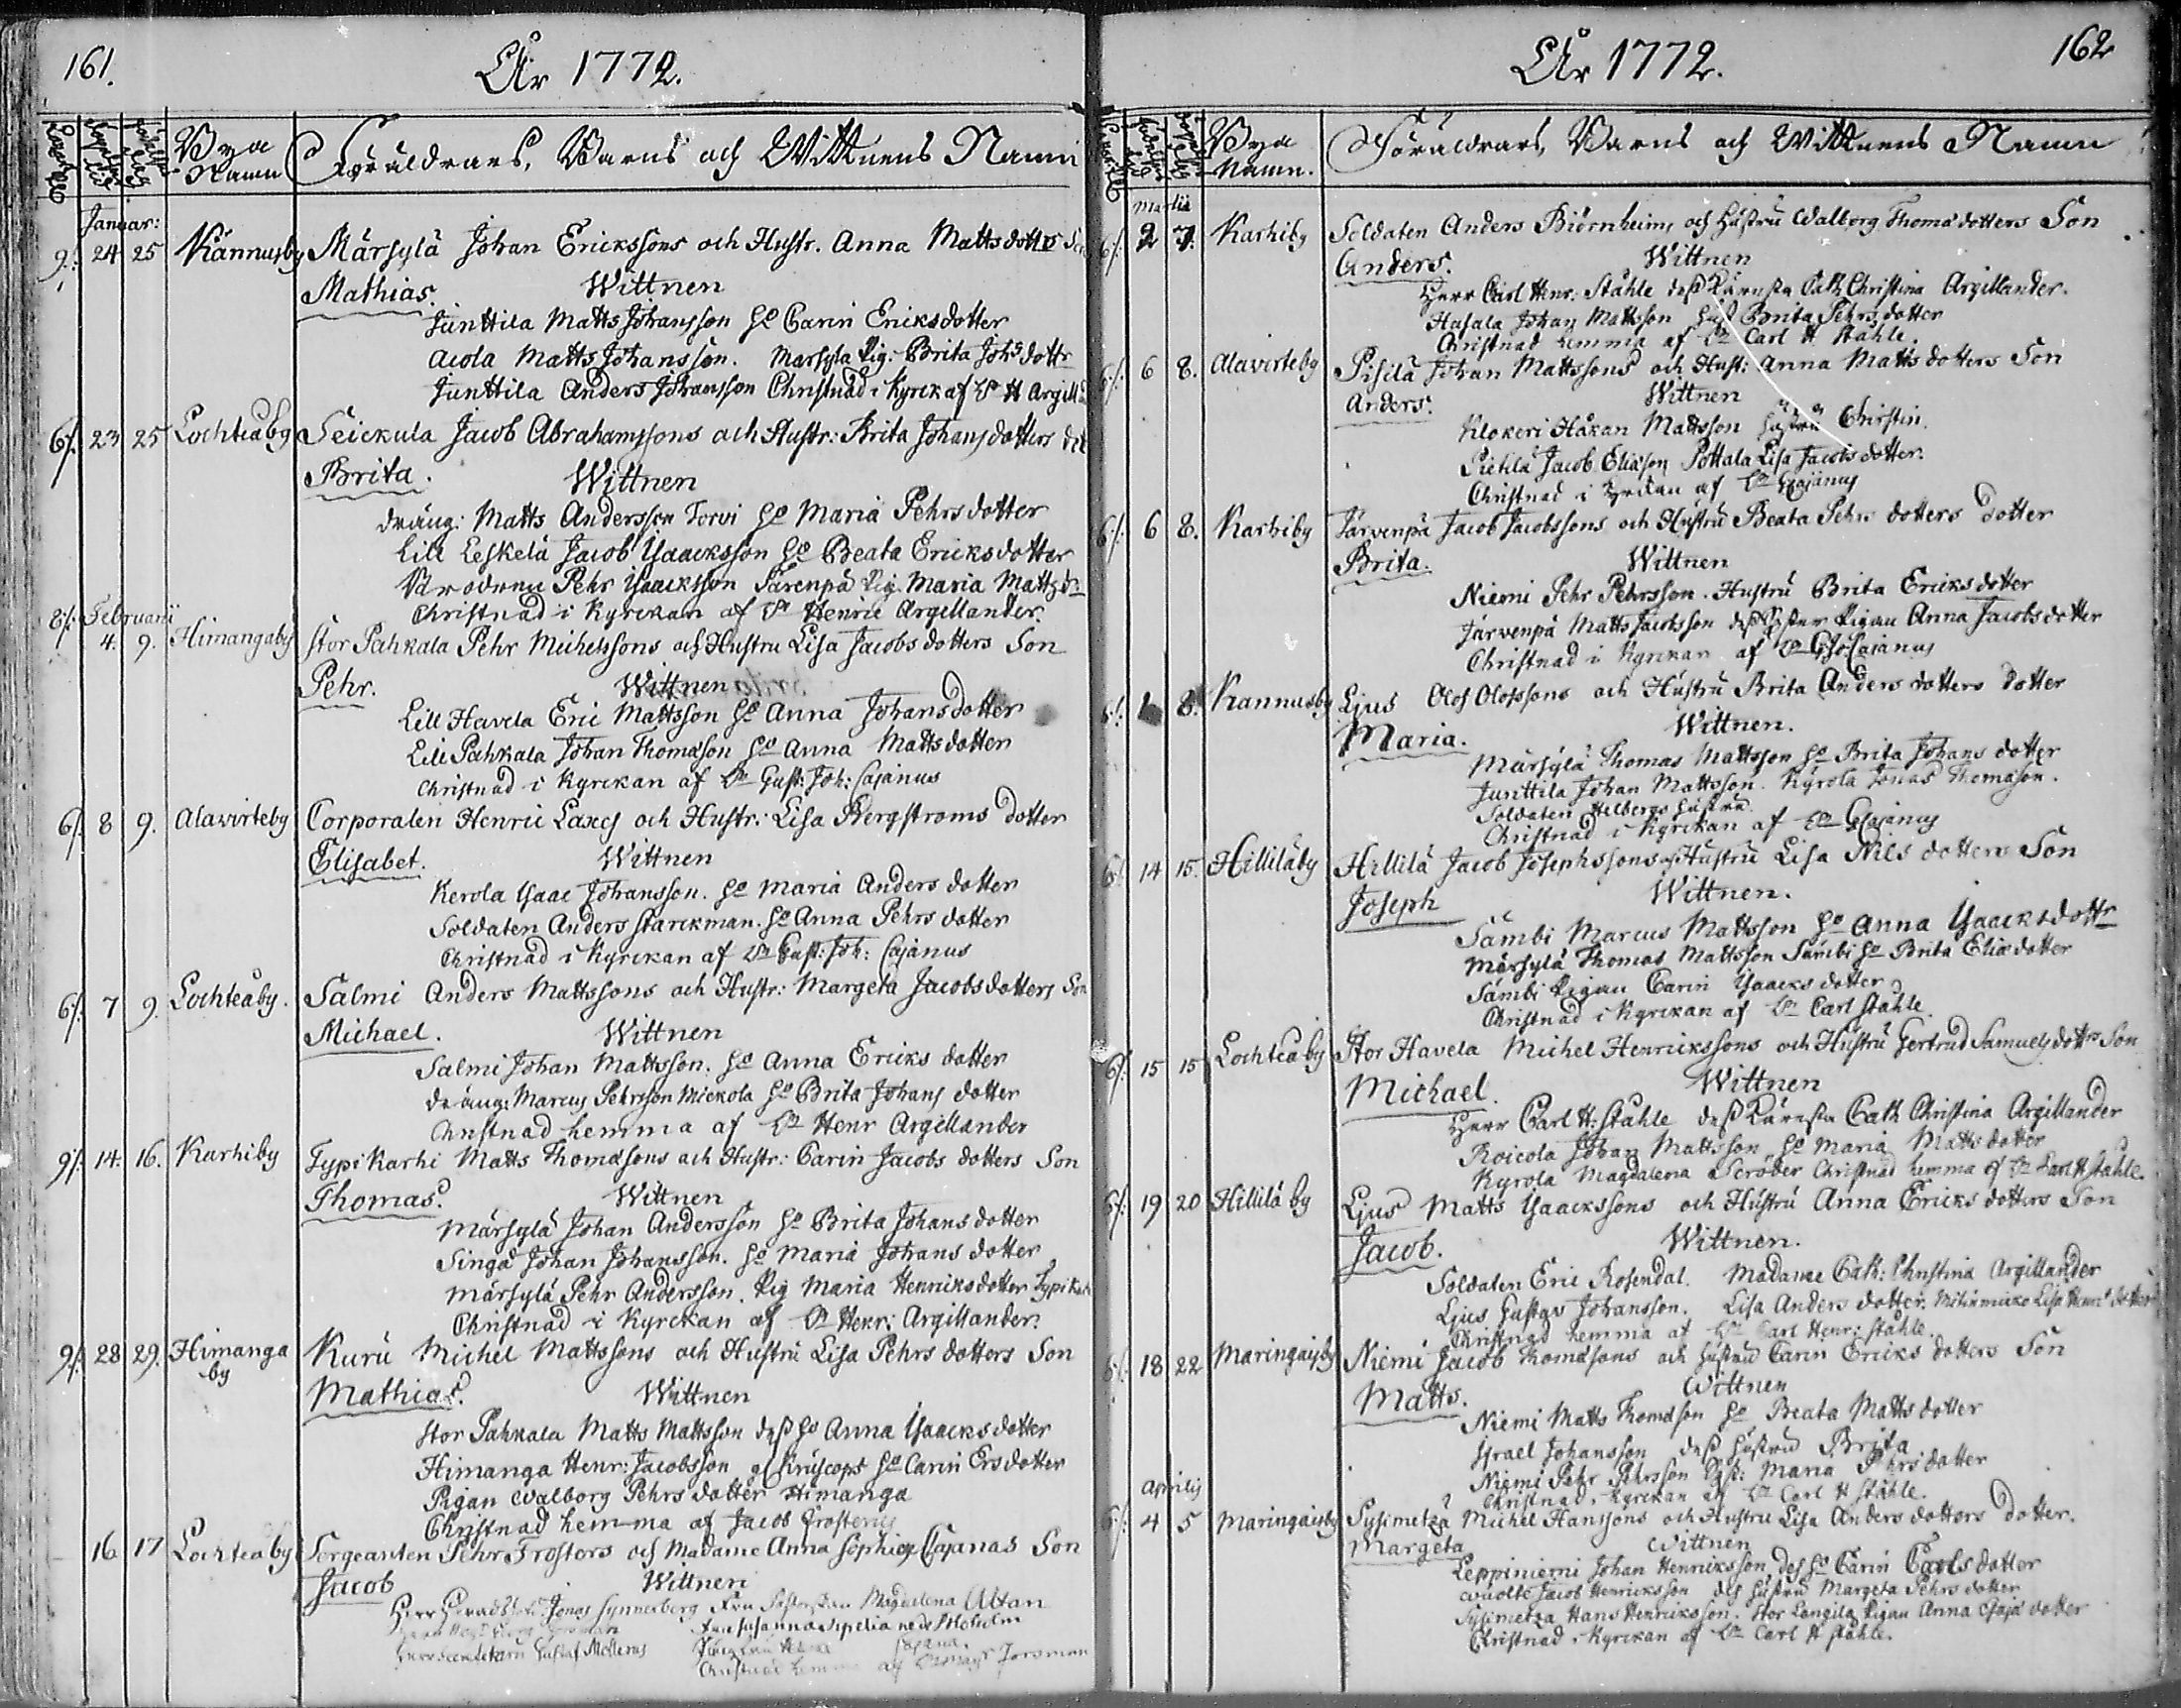 161.
År 1772.
Födelse tid
Bya Namn
Föräldrars, Barns och Wittnens Namn
Januar:
9. 24 25 Kännusby Märsylä Johan Erickssons och Hustr. Anna Mattsdotters Son
Mathias. Wittnen
Junttila Matts Johansson Ho Carin Ericksdotter
Aiola Matts Johansson. Marsyla Pig: Brita Johs dottr
Junttila Anders Johansson Christnad i Kyrck af Vn H Argill
6/. 23 25 Lochteåby Seickula Jacob Abrahamssons och Hustr: Brita Johansdotters
Brita. Wittnen
dräng: Matts Andersson Torvi Ho Maria Pehrsdotter
Lill Leskelä Jacob Ysaacksson Ho Beata Ericksdotter
Pehr Ysaacksson Järenpä Pig. Maria Matts dr
Christnad i Kyrckan af Vn Henric Argillander.
Februarii
8/. 4. 9. Himangaby Stor Pahkala Pehr Michelssons och Hustru Lisa Jacobsdotters Son
Pehr. Wittnen
Lill Havela Eric Mattsson Ho Anna Johansdotter
Lill Pahkala Johan Thomasson Ho Anna Mattsdotter
Christnad i Kyrckan af Vn Gust: Joh: Cajanus
6/. 8 9. Alawirteby Corporalen Henric Laxes och Hustr: Lisa Bergstroms dotter
Elisabet. Wittnen
Kerola Ysaac Johansson. Ho Maria Anders dotter
Soldaten Anders Starckman. Ho Anna Pehrs dotter
Christnad i Kyrckan af Vn Gust: Joh: Cajanus
6/. 7 9. Lochteåby. Salmi Anders Mattssons och Hustr: Margeta Jacobsdotters Son
Michael. Wittnen
Salmi Johan Mattsson. Ho Anna Ericks dotter
dräng: Marcus Pehrsson Mickola Ho Brita Johans dotter
Christnad hemma af Vn Henr Argillander
9/. 14. 16. Karhiby Typi Karhi Matts Thomassons och Hustr: Carin Jacobs dotters Son
Thomas. Wittnen
Märsylä Johan Andersson Ho Brita Johans dotter
Singa Johan Johansson. Ho Maria Johans dotter
Märsylä Pehr Andersson. Pig Maria Henricksdotter Typi
Christnad i Kyrckan af Vn Henr: Argillander.
9/. 28 29. Himanga by Kuru Michel Mattssons och Hustru Lisa Pehrs dotters Son
Mathias. Wittnen
Stor Pahkala Matts Mattsson dess Ho Anna Ysaacksdotter
Himanga Henr: Jacobsson Ho Carin Ersdotter
Pigan Walborg Pehrs dotter Himanga
Christnad hemma af Jacob Frosterus
16 17 Lochteaby Sergeanten Pehr Frosters och Madame Anna Sophia Cajanas Son
Jacob Wittnen
Herr Jonas Synnerberg Magdalena Altan
Fru Susanna
Herr Secreteraren Gustaf Mollerus
Christnad hemma af Forsman
162
År 1772.
Bya Namn.
Föräldrars, Barns och Wittnens Namn
Martii
6/. 2 7. Karhiby Soldaten Anders Biörnheim, och Hustru Walborg Thomadotters Son
Anders. Wittnen
Herr Carl Henr: Ståhle dess Cath Christina Argillander.
Hasala Johan Mattsson Brita Pehrs dotter
Christnad hemma af Vn Carl H Ståhle.
6/. 6 8. Alawirteby Pisilä Johan Mattssons och Hust: Anna Matts dotters Son
Anders. Wittnen
Klokeri Håkan Mattsson Hustru Christin.
Piehlä Jacob Eliasson Pottala Lisa Jacobs dotter.
Christnad i Kyrckan af Vn Cajanus
6/. 6 8. Karhiby Järvenpä Jacob Jacobssons och Hustru Beata Pehrs dotters dotter
Brita. Wittnen
Niemi Pehr Pehrsson. Hustru Brita Ericks dotter
Järvenpä Matts Jacobsson dess Syster Pigan Anna Jacobs dotter
Christnad i Kyrckan af Vn Cajanus
6/. 8. Kannusby Ljus Olof Olofssons och Hustru Brita Anders dotters dotter
Maria. Wittnen.
Märsylä Thomas Mattsson Ho Brita Johans dotter
Junttila Johan Mattsson. Kyrola Jonas Thomason.
Soldaten Helbergs Hustru
Christnad i Kyrckan af Vn Cajanus
6/. 14 15. Hilliläby Hillilä Jacob Josephssons och Hustru Lisa Nils dotters Son
Joseph Wittnen.
Sämbi Marcus Mattsson Ho Anna Ysaacksdottr
Märsylä Thomas Mattsson Sämbi Ho Brita Elias dotter
Sämbi Pigan Carin Ysaacks dotter
Christnad i Kyrckan af Vn Carl Ståhle
6/. 15 15 Lochteåby Stor Havela Michel Henrickssons och Hustru Gertrud Samuelsdottrs Son
Michael. Wittnen
Herr Carl H: Ståhle dess Cath Christina Argillander
Roicola Johan Mattsson, Ho Maria Matts dotter
Kyrola Magdalena Scröder Christnad hemma af Vn Carl H Ståhle.
6/. 19 20 Hillilä by Ljus Matts Ysaackssons och Hustru Anna Ericks dotters Son
Jacob. Wittnen.
Soldaten Eric Rosendal. Madame Cath: Christina Argillander
Ljus Gustav Johansson. Lisa Anders dotter. Lisa Henrs dotter
Christnad hemma af Vn Carl Henr: Ståhle.
6/. 18 22 Maringaisby Niemi Jacob Thomassons och Hustru Carin Ericks dotters Son
Matts. Wittnen
Niemi Matts Thomasson Ho Beata Matts dotter
Israel Johansson dess Hustru Brita
Niemi Pehr Pehrsson Hust: Maria Pehrs dotter
Christnad i Kyrckan af Vn Carl H Ståhle.
Aprilis
6/. 4 5 Maringaisby Sysimetzä Michel Hanssons och Hustru Lisa Anders dotters dotter.
Margeta Wittnen
Leppiniemi Johan Henricksson, des Ho Carin Carls dotter
Wuolle Jacob Henricksson des Hustru Margeta Pehrs dotter
Sysimetza Hans Henricksson. Stor Langila Pigan Anna dotter
Christnad i Kyrckan af Vn Carl H Ståhle.